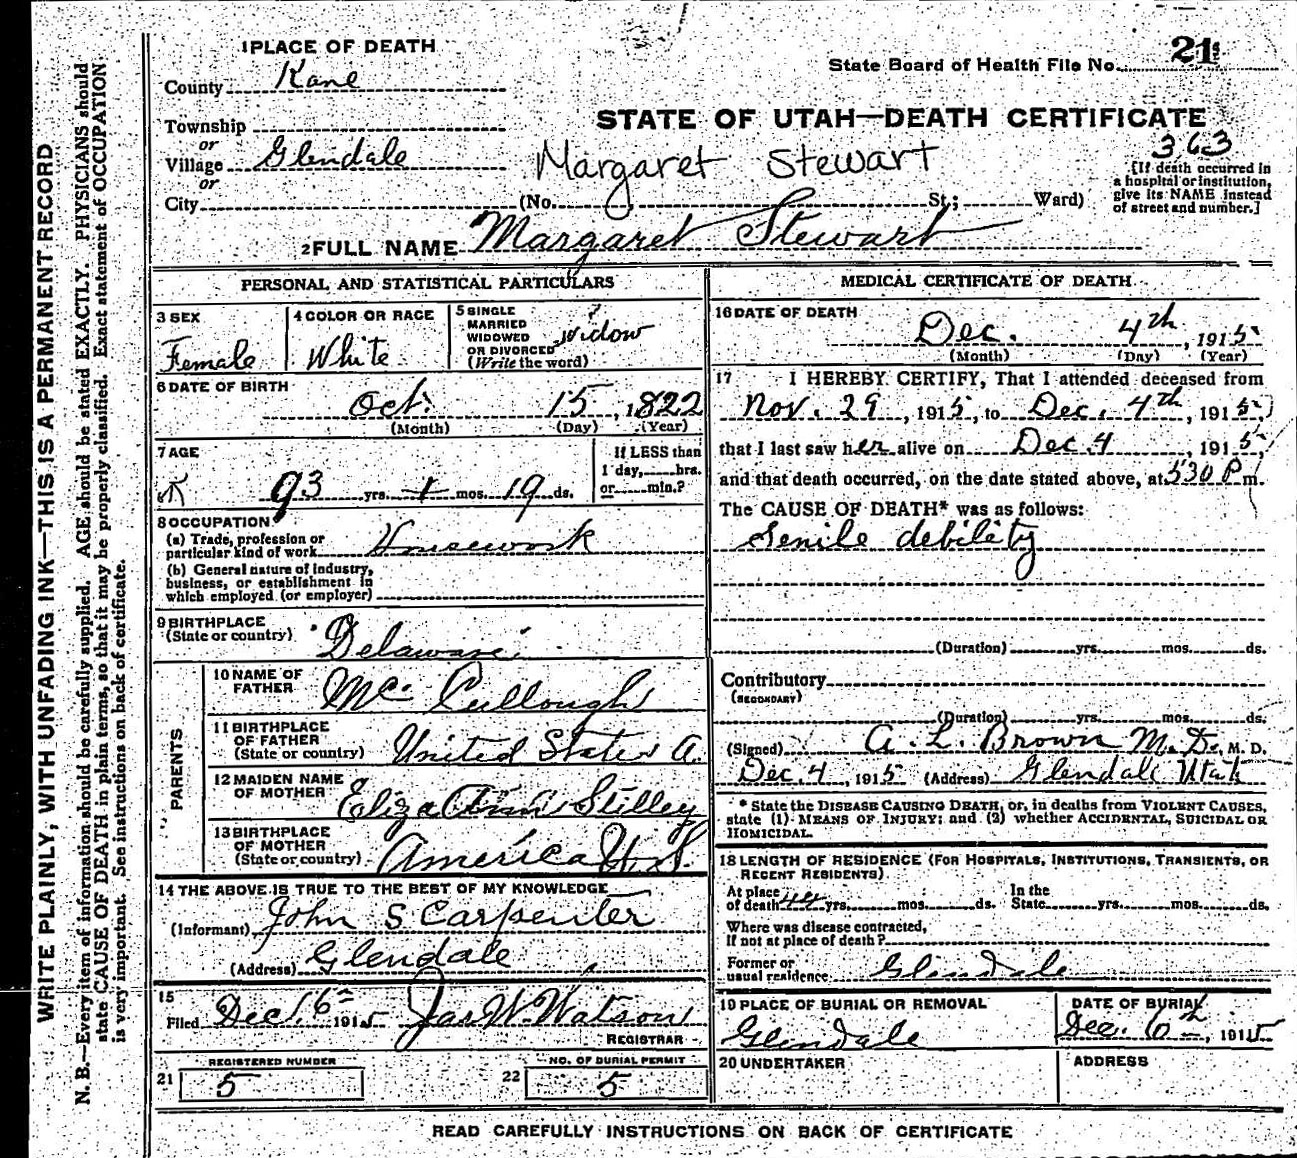 1 PLACE OF DEATH
County Kane
State Board of Health File No. 21
Township
STATE OF UTAH—DEATH CERTIFICATE
or
363
Village Glendale
Margaret Stewart
or
[If death occurred in a hospital or institution, give its NAME instead of street and number.]
City (No. St.; Ward)
2 FULL NAME Margaret Stewart
PERSONAL AND STATISTICAL PARTICULARS
3 SEX
Female
4 COLOR OR RACE
White
5 SINGLE
MARRIED
WIDOWED
OR DIVORCED
(Write the word)
widow
6 DATE OF BIRTH
Oct. 15, 1822
(Month) (Day) (Year)
7 AGE
93 yrs. 1 mos. 19 ds.
If LESS than
1 day, hrs.
or min.?
8 OCCUPATION
(a) Trade, profession or
particular kind of work Housework
(b) General nature of Industry,
business, or establishment in
which employed (or employer)
9 BIRTHPLACE
(State or country) Delaware
PARENTS
10 NAME OF
FATHER Mc Cullough
11 BIRTHPLACE
OF FATHER
(State or country) United States A.
12 MAIDEN NAME
OF MOTHER Eliza Ann Stilley
13 BIRTHPLACE
OF MOTHER
(State or country) America
14 THE ABOVE IS TRUE TO THE BEST OF MY KNOWLEDGE
(Informant) John S Carpenter
(Address) Glendale
15
Filed Dec. 6 1915 Jas W. Watson
REGISTRAR
REGISTERED NUMBER
21 5
NO. OF BURIAL PERMIT
22 5
MEDICAL CERTIFICATE OF DEATH
16 DATE OF DEATH
Dec. 4th, 1915
(Month) (Day) (Year)
17 I HEREBY CERTIFY, That I attended deceased from
Nov. 29, 1915, to Dec. 4th, 1915,
that I last saw her alive on Dec. 4, 1915,
and that death occurred, on the date stated above, at 530 P m.
The CAUSE OF DEATH* was as follows:
Senile debility
(Duration) yrs. mos. ds.
Contributory
(SECONDARY)
(Duration) yrs. mos. ds.
(Signed) A. L. Brown M.D., M. D.
Dec. 4, 1915 (Address) Glendale Utah
* State the DISEASE CAUSING DEATH, or, in deaths from VIOLENT CAUSES,
state (1) MEANS OF INJURY; and (2) whether ACCIDENTAL, SUICIDAL OR
HOMICIDAL.
18 LENGTH OF RESIDENCE (FOR HOSPITALS, INSTITUTIONS, TRANSIENTS, OR
RECENT RESIDENTS)
At place
of death 44 yrs. mos. ds. In the
State yrs. mos. ds.
Where was disease contracted,
If not at place of death?
Former or
usual residence Glendale
19 PLACE OF BURIAL OR REMOVAL
Glendale
DATE OF BURIAL
Dec. 6th, 1915
20 UNDERTAKER
ADDRESS
READ CAREFULLY INSTRUCTIONS ON BACK OF CERTIFICATE
WRITE PLAINLY, WITH UNFADING INK—THIS IS A PERMANENT RECORD
N. B.—Every item of information should be carefully supplied. AGE should be stated EXACTLY. PHYSICIANS should
state CAUSE OF DEATH in plain terms, so that it may be properly classified. Exact statement of OCCUPATION
is very important. See instructions on back of certificate.